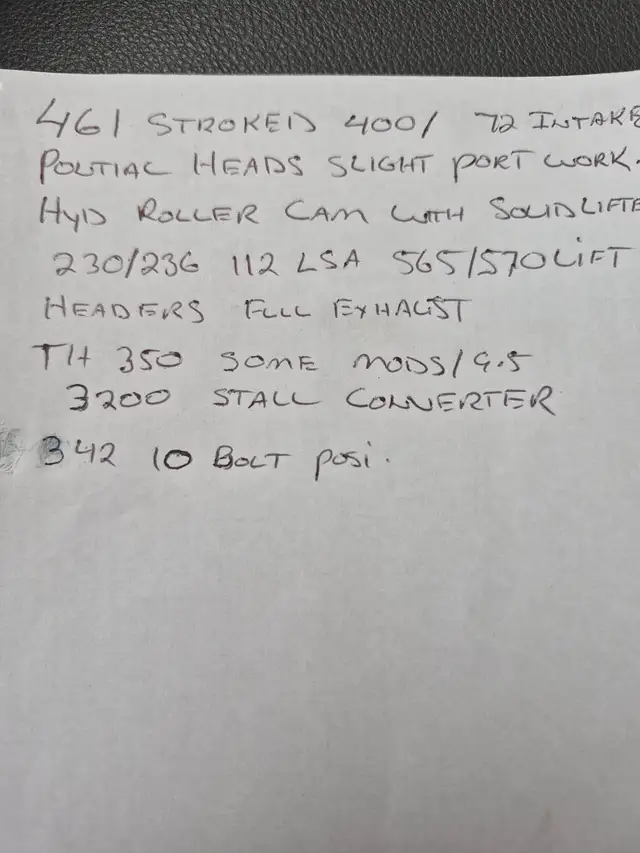 461 STROKED 400/ 72 INTAKE
PONTIAC HEADS SLIGHT PORT WORK.
HYD ROLLER CAM WITH SOLID LIFTE
230/236 112 LSA 565/570 LIFT
HEADERS FULL EXHAUST
TH 350 SOME MODS/9.5
3200 STALL CONVERTER
342 10 BOLT POSI.